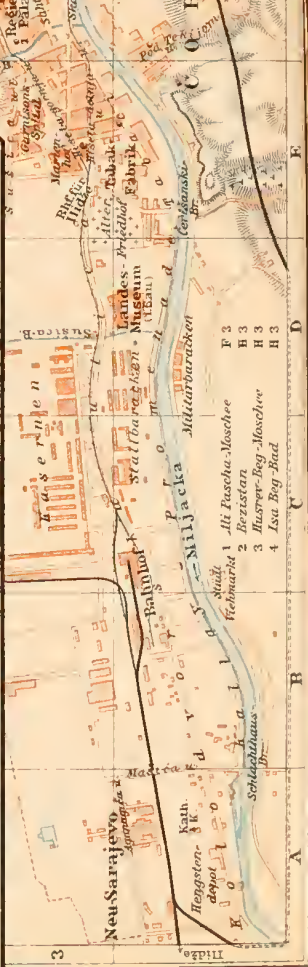 3
Ilidža
A
B
C
D
E
Neu-Sarajevo
Kath.
K.
Hengsten-
depôt
Schlachthaus
Br.
Bahnhof
Städt.
Viehmarkt
Miljacka
Kasernen
Stallbaracken
Militärbaracken
Sušica-B.
Landes-
Museum
(i.Bau)
Alter
Friedhof
Tabak-
Fabrik
Garnisons-
Spital
Br.
1 Ali Pascha-Moschee F 3
2 Bezistan H 3
3 Husrev-Beg-Moschee H 3
4 Isa Beg-Bad H 3